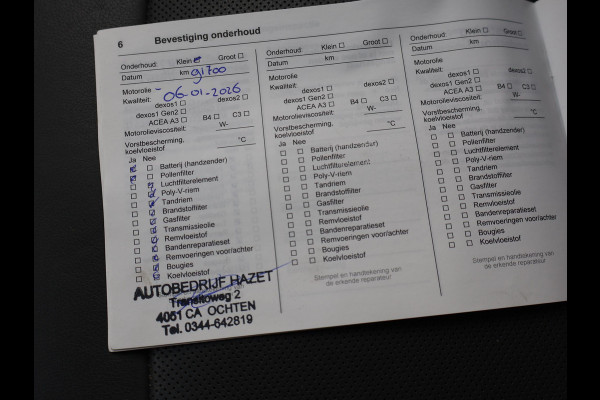 6 Bevestiging onderhoud
Onderhoud: Klein Groot
Datum km 91700
Motorolie -
Kwaliteit: 06-01-2026
dexos1 dexos2
dexos1 Gen2
ACEA A3 B4 C3
Motorolieviscositeit: W-
Vorstbescherming,
koelvloeistof °C
Ja Nee
Batterij (handzender)
Pollenfilter
Luchtfilterelement
Poly-V-riem
Tandriem
Brandstoffilter
Gasfilter
Transmissieolie
Remvloeistof
Bandenreparatieset
Remvoeringen voor/achter
Bougies
Koelvloeistof
AUTOBEDRIJF HAZET
Transitoweg 2
4051 CA OCHTEN
Tel. 0344-642819
Onderhoud: Klein Groot
Datum km
Motorolie
Kwaliteit:
dexos1 dexos2
dexos1 Gen2
ACEA A3 B4 C3
Motorolieviscositeit: W-
Vorstbescherming,
koelvloeistof °C
Ja Nee
Batterij (handzender)
Pollenfilter
Luchtfilterelement
Poly-V-riem
Tandriem
Brandstoffilter
Gasfilter
Transmissieolie
Remvloeistof
Bandenreparatieset
Remvoeringen voor/achter
Bougies
Koelvloeistof
Stempel en handtekening van
de erkende reparateur
Onderhoud: Klein Groot
Datum km
Motorolie
Kwaliteit:
dexos1 dexos2
dexos1 Gen2
ACEA A3 B4 C3
Motorolieviscositeit: W-
Vorstbescherming,
koelvloeistof °C
Ja Nee
Batterij (handzender)
Pollenfilter
Luchtfilterelement
Poly-V-riem
Tandriem
Brandstoffilter
Gasfilter
Transmissieolie
Remvloeistof
Bandenreparatieset
Remvoeringen voor/achter
Bougies
Koelvloeistof
Stempel en handtekening van
de erkende reparateur